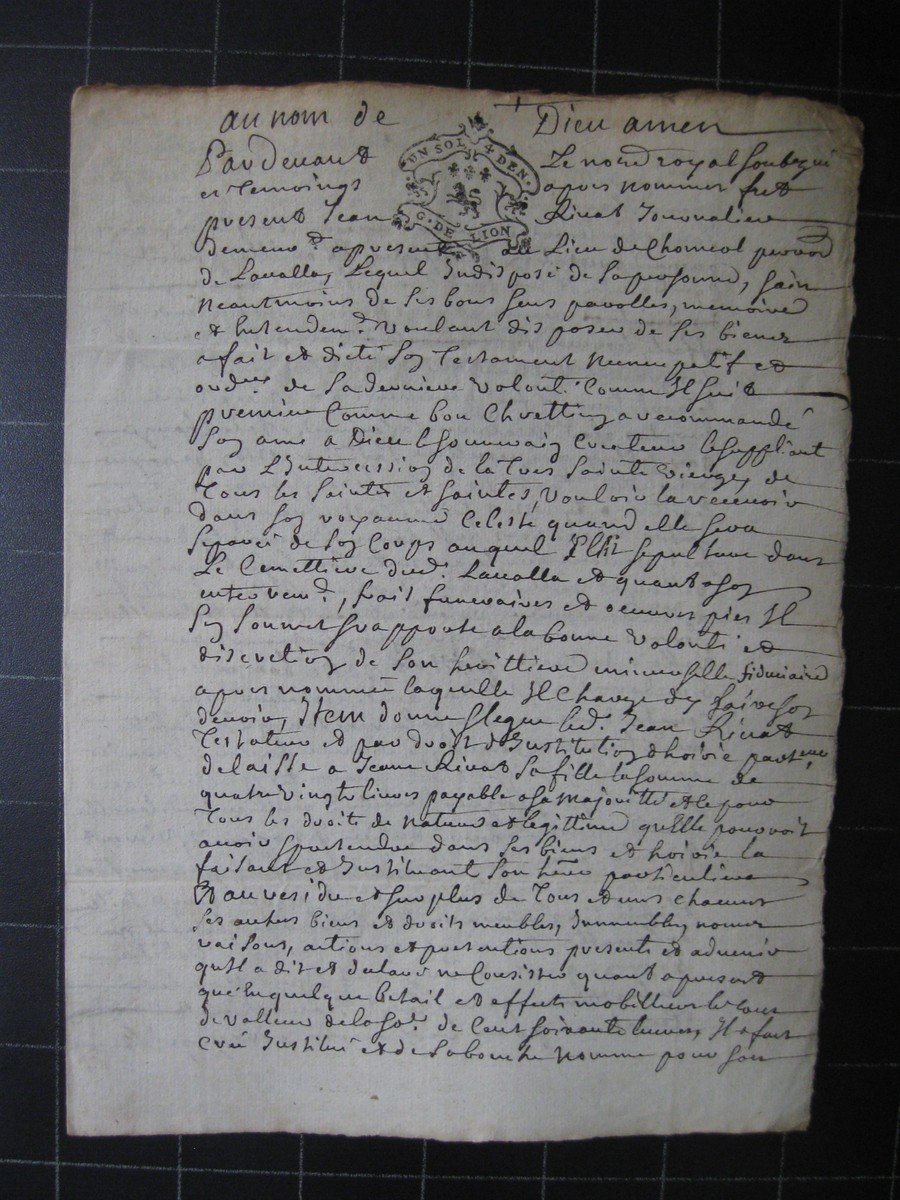 au nom de Dieu amen
UN SOL 4 DEN.
G. DE LION
Pardevant Le no.re royal soubsigné
et temoings apres nommer fut
present Jean Rivat Journalier
demeur.t apresent au Lieu de Chomiol parroisse
de Lavalla, Lequel Indisposé de sa personne, sain
neantmoins de ses bons sens parolles, memoire
et Entendem.t voulant disposer de ses biens
a fait et dicté son Testament nuncupatif et
ord.ce de sa derniere volonté comme Il suit
premier comme bon Chrettien a recommandé
son ame a Dieu le souverain Createur le suppliant
par L'Intercession de la tres sainte vierge, de
tous les saints et saintes, vouloir la recevoir
dans son royaume Celeste quand elle sera
separée de son Corps auquel Elit sepulture dans
Le Cemettiere dud.t Lavalla et quant a son
enterrem.t, frais funeraires et oeuvres pies Il
s'en soumet & rapporte a la bonne volonté et
discretion de son heritiere universelle fiduciaire
apres nommée laquelle Il Charge d'en faire son
devoir, Item donne & legue led.t Jean Rivat
Testateur et par droit d'Institution & hoirie part.re
delaisse a Jeane Rivat sa fille la somme de
quatre vingt livres payable a sa majorité et ce pour
tous les droits de nature et legittime qu'Elle pourroit
avoir & pretendre dans ses biens et hoirie la
faisant et Instituant son here particuliere
Et au residu et surplus de tous et uns chacuns
ses autres biens et droits meubles, Immeubles, noms
raisons, actions et pretentions presents et advenir
qu'Il a dit et declaré ne Consister quant a present
que En quelque betail et effects mobilliers le tout
de valleur de la so.e de Cent soixante livres, Il a fait
créé Institué et de sa bouche nommé pour son